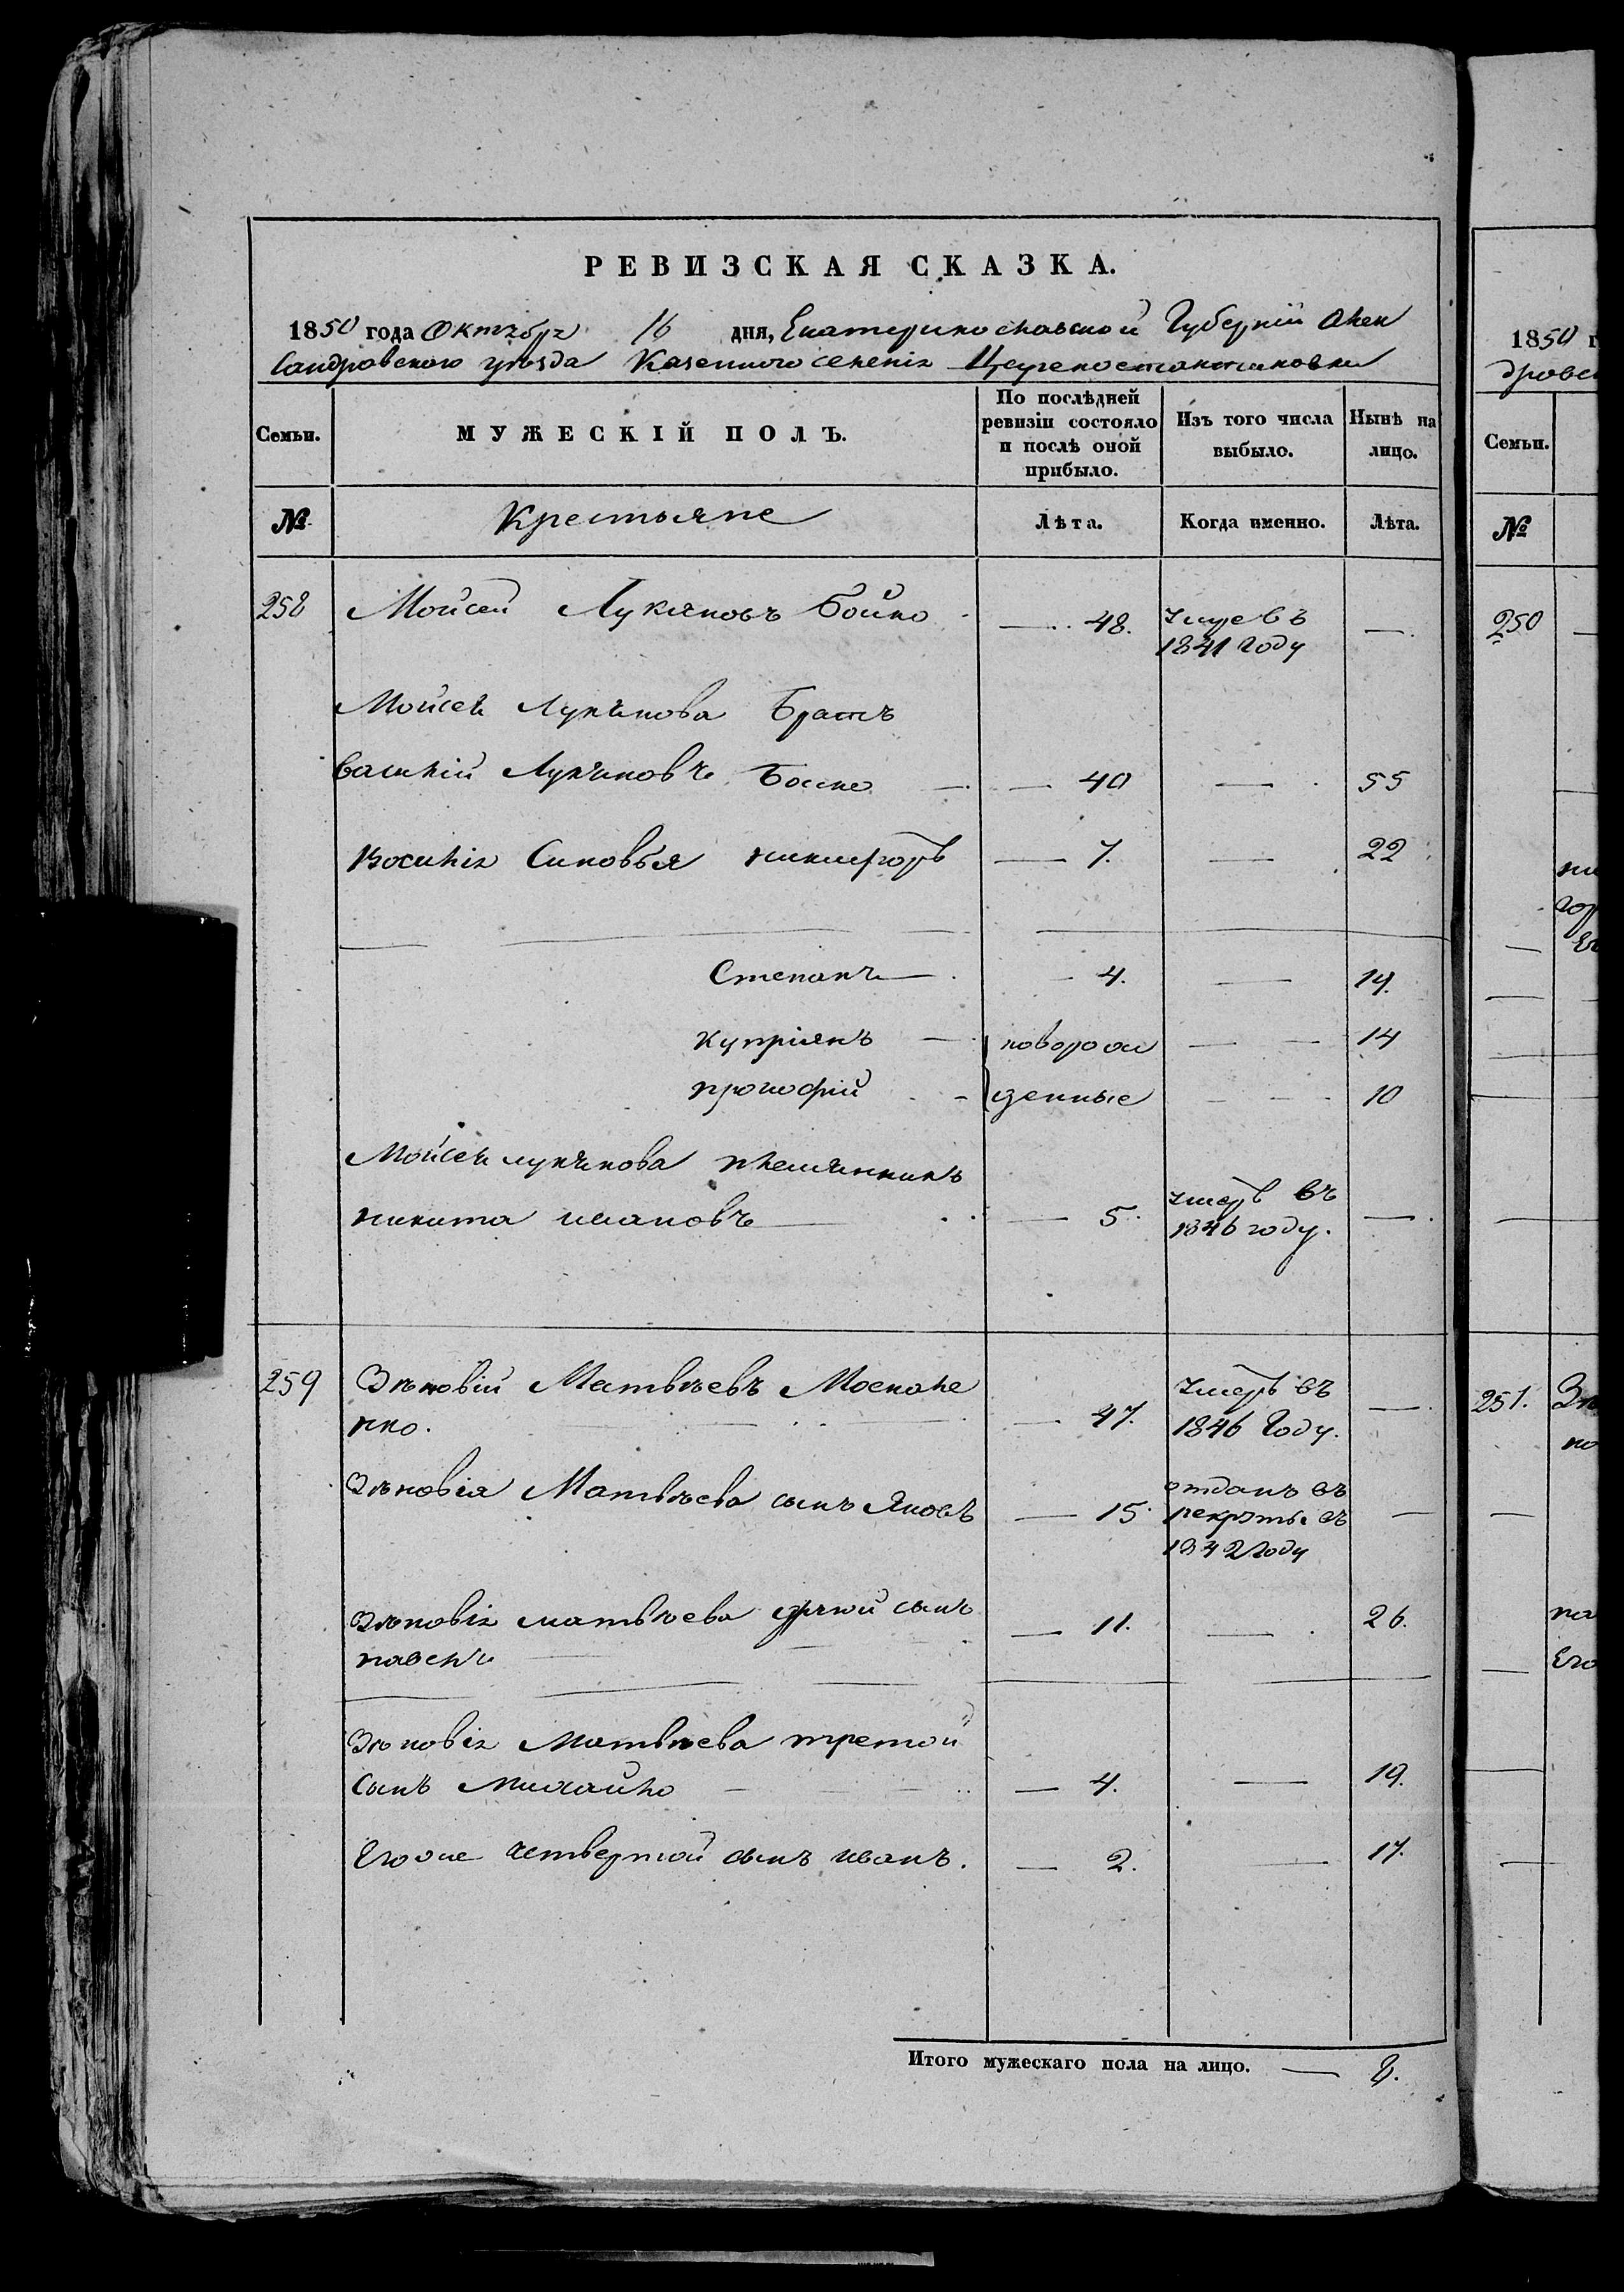 РЕВИЗСКАЯ СКАЗКА.
1850 года Октября 16 дня, Екатеринославской Губерніи Алек
сандровского уѣзда Казенного селенія Цареконстантиновки
Семьи. МУЖЕСКІЙ ПОЛЪ. По послѣдней ревизіи состояло и послѣ оной прибыло. Изъ того числа выбыло. Нынѣ на лицо.
№ Крестьяне Лѣта. Когда именно. Лѣта.
258 Мойсей Лукяновъ Бойко — 48. Умре въ
1841 году —
Мойсея Лукянова Братъ
Василій Лукяновъ Бойко — 40 — 55
Василія Синовья никифоръ — 7. — 22
Степанъ — 4. — 19.
Куприянъ — новорож — 14
прокофій — денные — 10
Мойсея лукянова племянникъ
никита ивановъ — 5. умеръ въ
1846 году. —
259 Зѣновій Матвѣевъ Москале
нко. — 47. Умеръ въ
1846 Году. —
Зѣновія Матвѣева сынъ Яковъ — 15. отданъ въ
рекруты въ
1842 году —
Зѣновія матвѣева другой сынъ
павелъ — 11. — 26.
Зѣновія Матвѣева третой
сынъ Михайло — 4. — 19.
Егоже четвертой сынъ иванъ. — 2. — 17.
Итого мужескаго пола на лицо. — 8.
1850 г
дровс
Семьи.
№
250
251.
Его